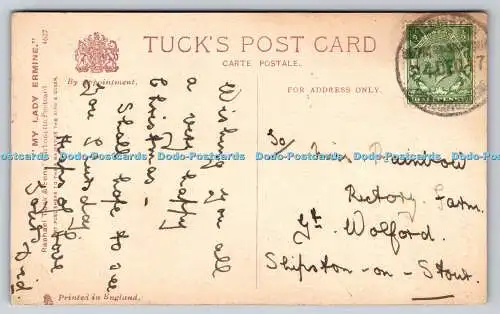 TUCK'S POST CARD
CARTE POSTALE.
By Appointment.
FOR ADDRESS ONLY.
"MY LADY ERMINE."
Printed in England.
HALF PENNY
Wishing you all
a very happy
Christmas –
Shall hope to see
you Sunday
Heaps of love
To/ Miss Rainbow
Rectory Farm.
Gt Wolford.
Shipston – on – Stour.
Dodo-Postcards Dodo-Postcards Dodo-Postcards Dodo-Postcards Dodo-Postcards Dodo-Postcards